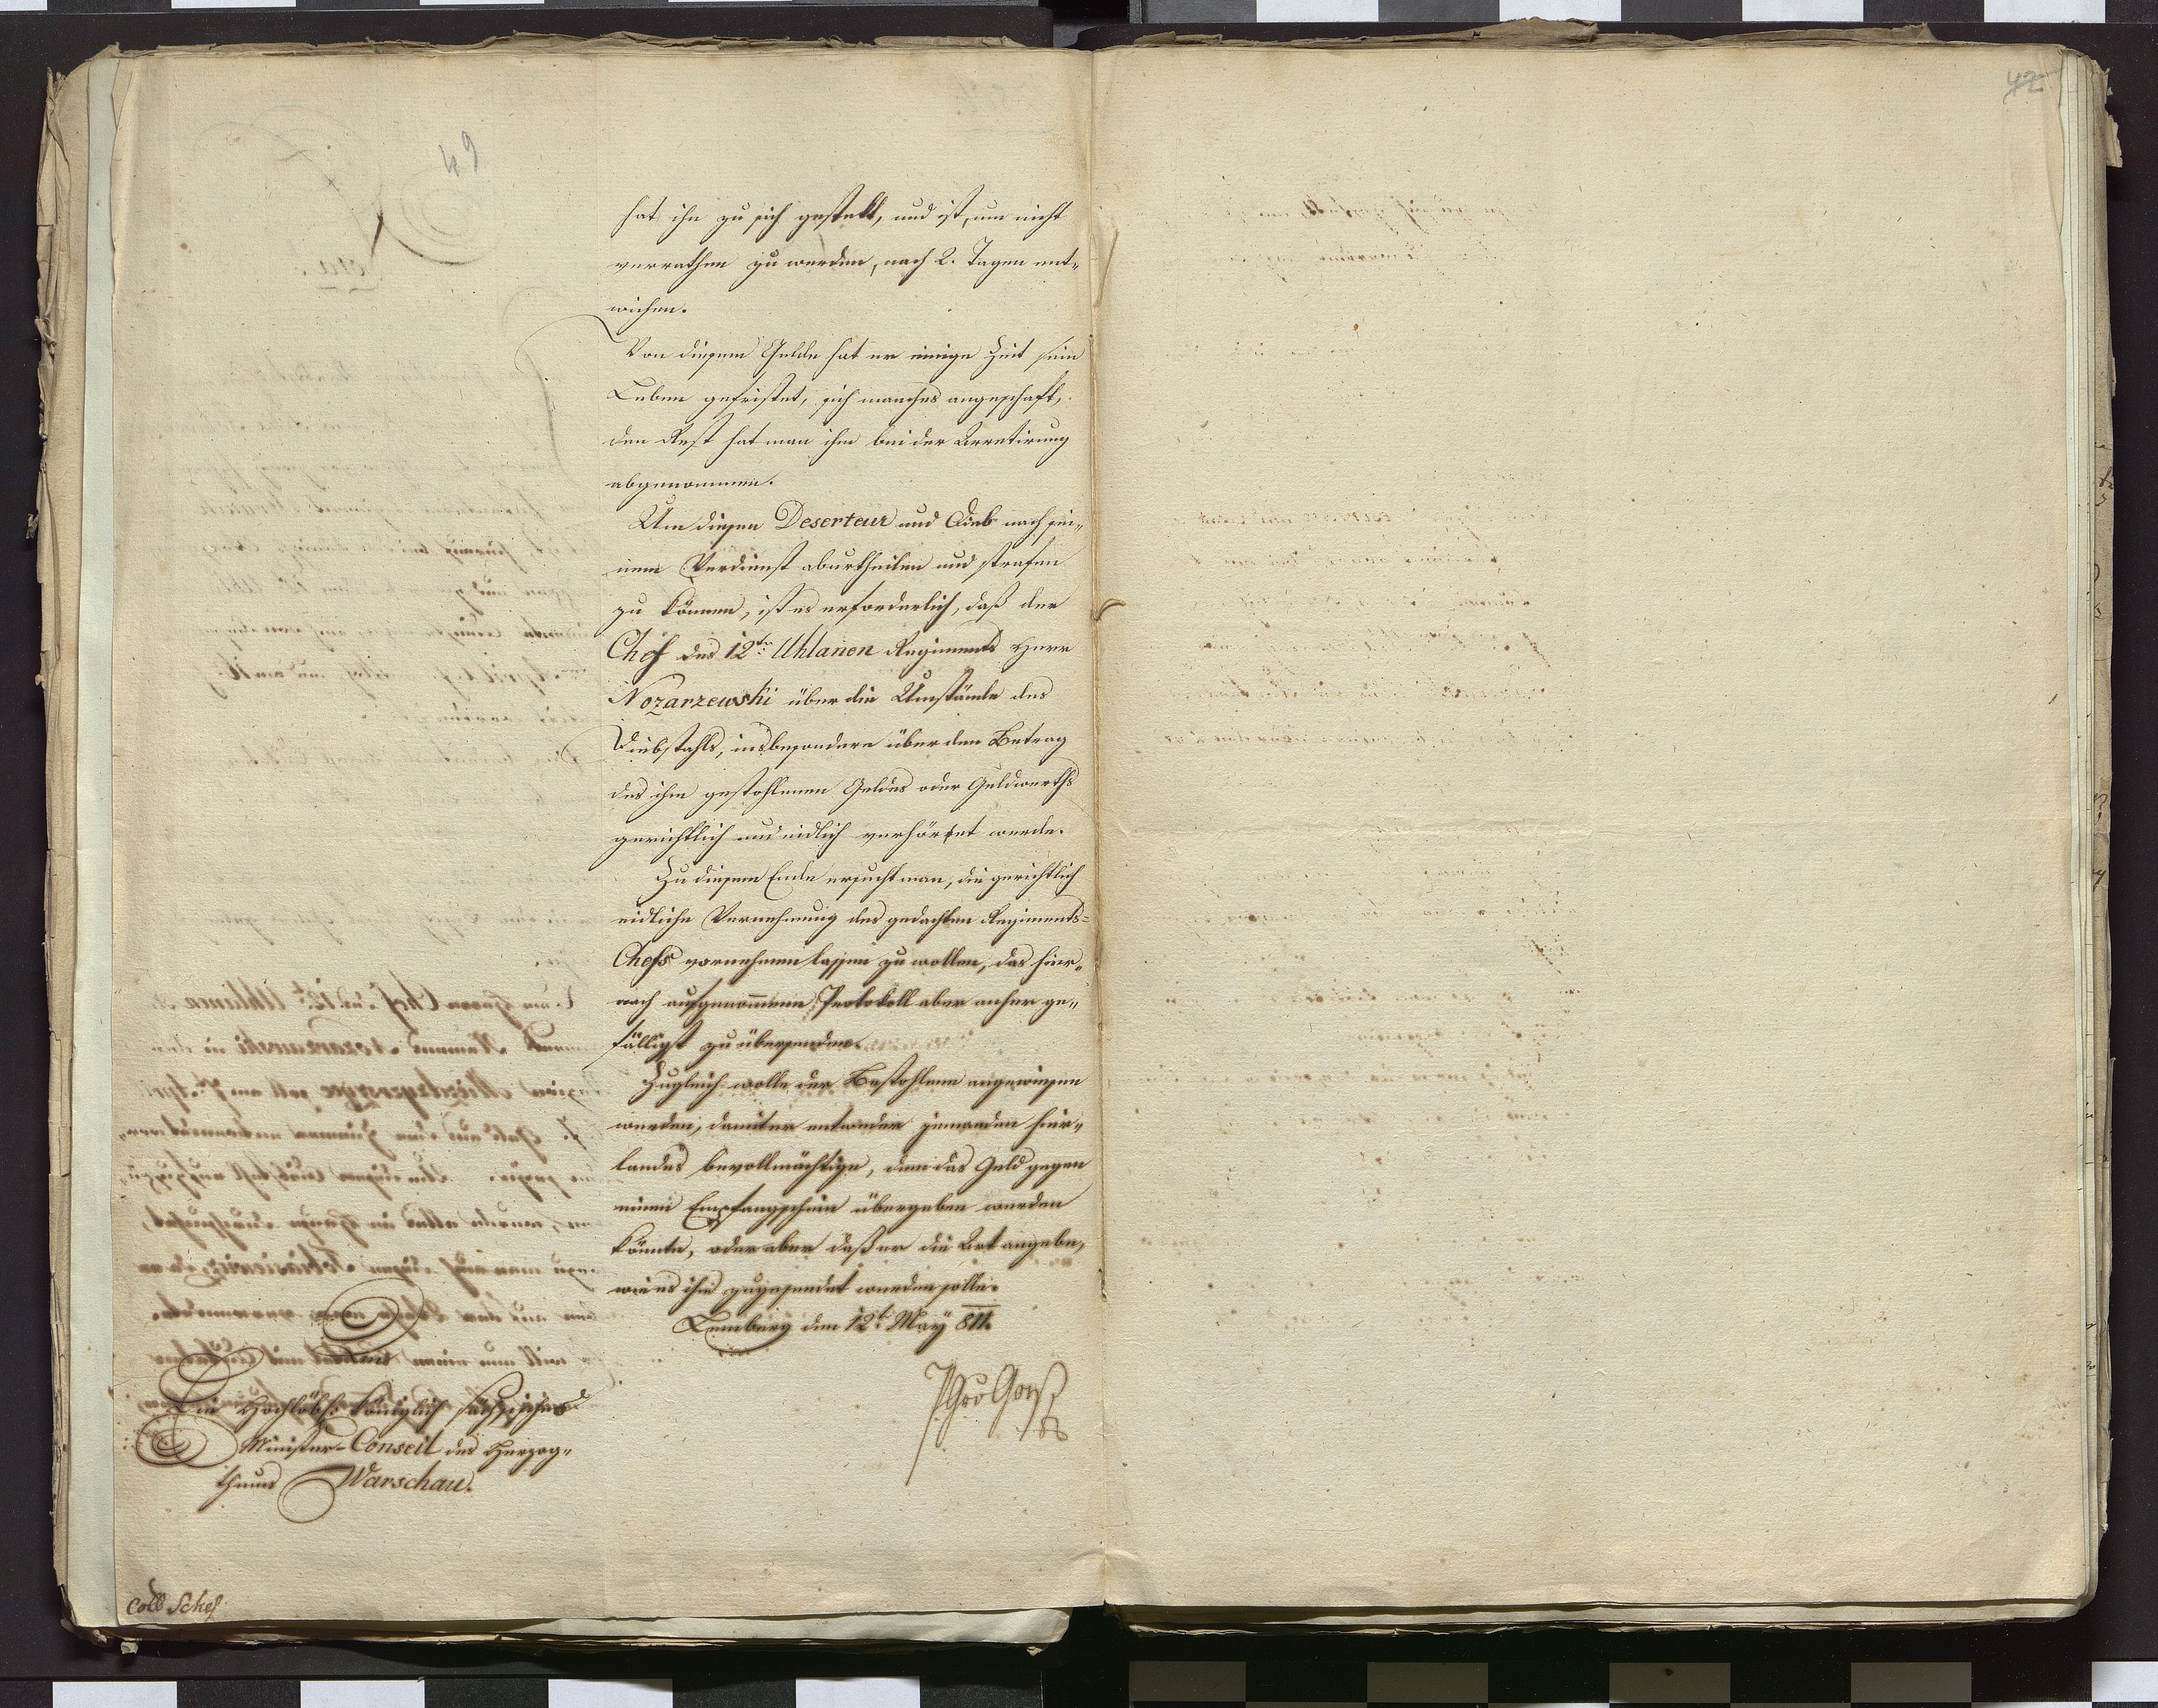 49
42
hat ihn zu sich gestekt, und ist, um nicht
verrathen zu werden, nach 2. Tagen ent„
wichen.
Von diesem Gelde hat er einige Zeit sein
Leben gefristet, sich manches angeschaft,
den Rest hat man ihm bei der Arretirung
abgenommen.
Um diesen Deserteur und Dieb nach sei„
nem Verdienst aburtheilen und strafen
zu können, ist es erforderlich, daß der
Chef des 12ten Uhlanen Regiments Herr
Nozarzewski über die Umstände des
Diebstahls, insbesondere über den Betrag
des ihm gestohlenen Geldes oder Geldwerths
gerichtlich und eidlich verhöret werde.
Zu diesem Ende ersucht man, die gerichtlich
eidliche Vernehmung des gedachten Regiments=
Chefs vornehmen lassen zu wollen, das hier„
nach aufgenom̄ene Protokoll aber anher ge„
fälligst zu übersenden.
Zugleich wolle der Bestohlene angewiesen
werden, damit er entweder jemanden hier„
landes bevollmächtige, dem das Geld gegen
einen Empfangschein übergeben werden
könnte, oder aber daß er die Art angebe,
wie es ihm zugesendet werden solle.
Lemberg den 12t May 811.
Ein Hochlöbl: königlich sächsisches
Minister-Conseil des Herzog„
thums Warschau.
Coll Schef